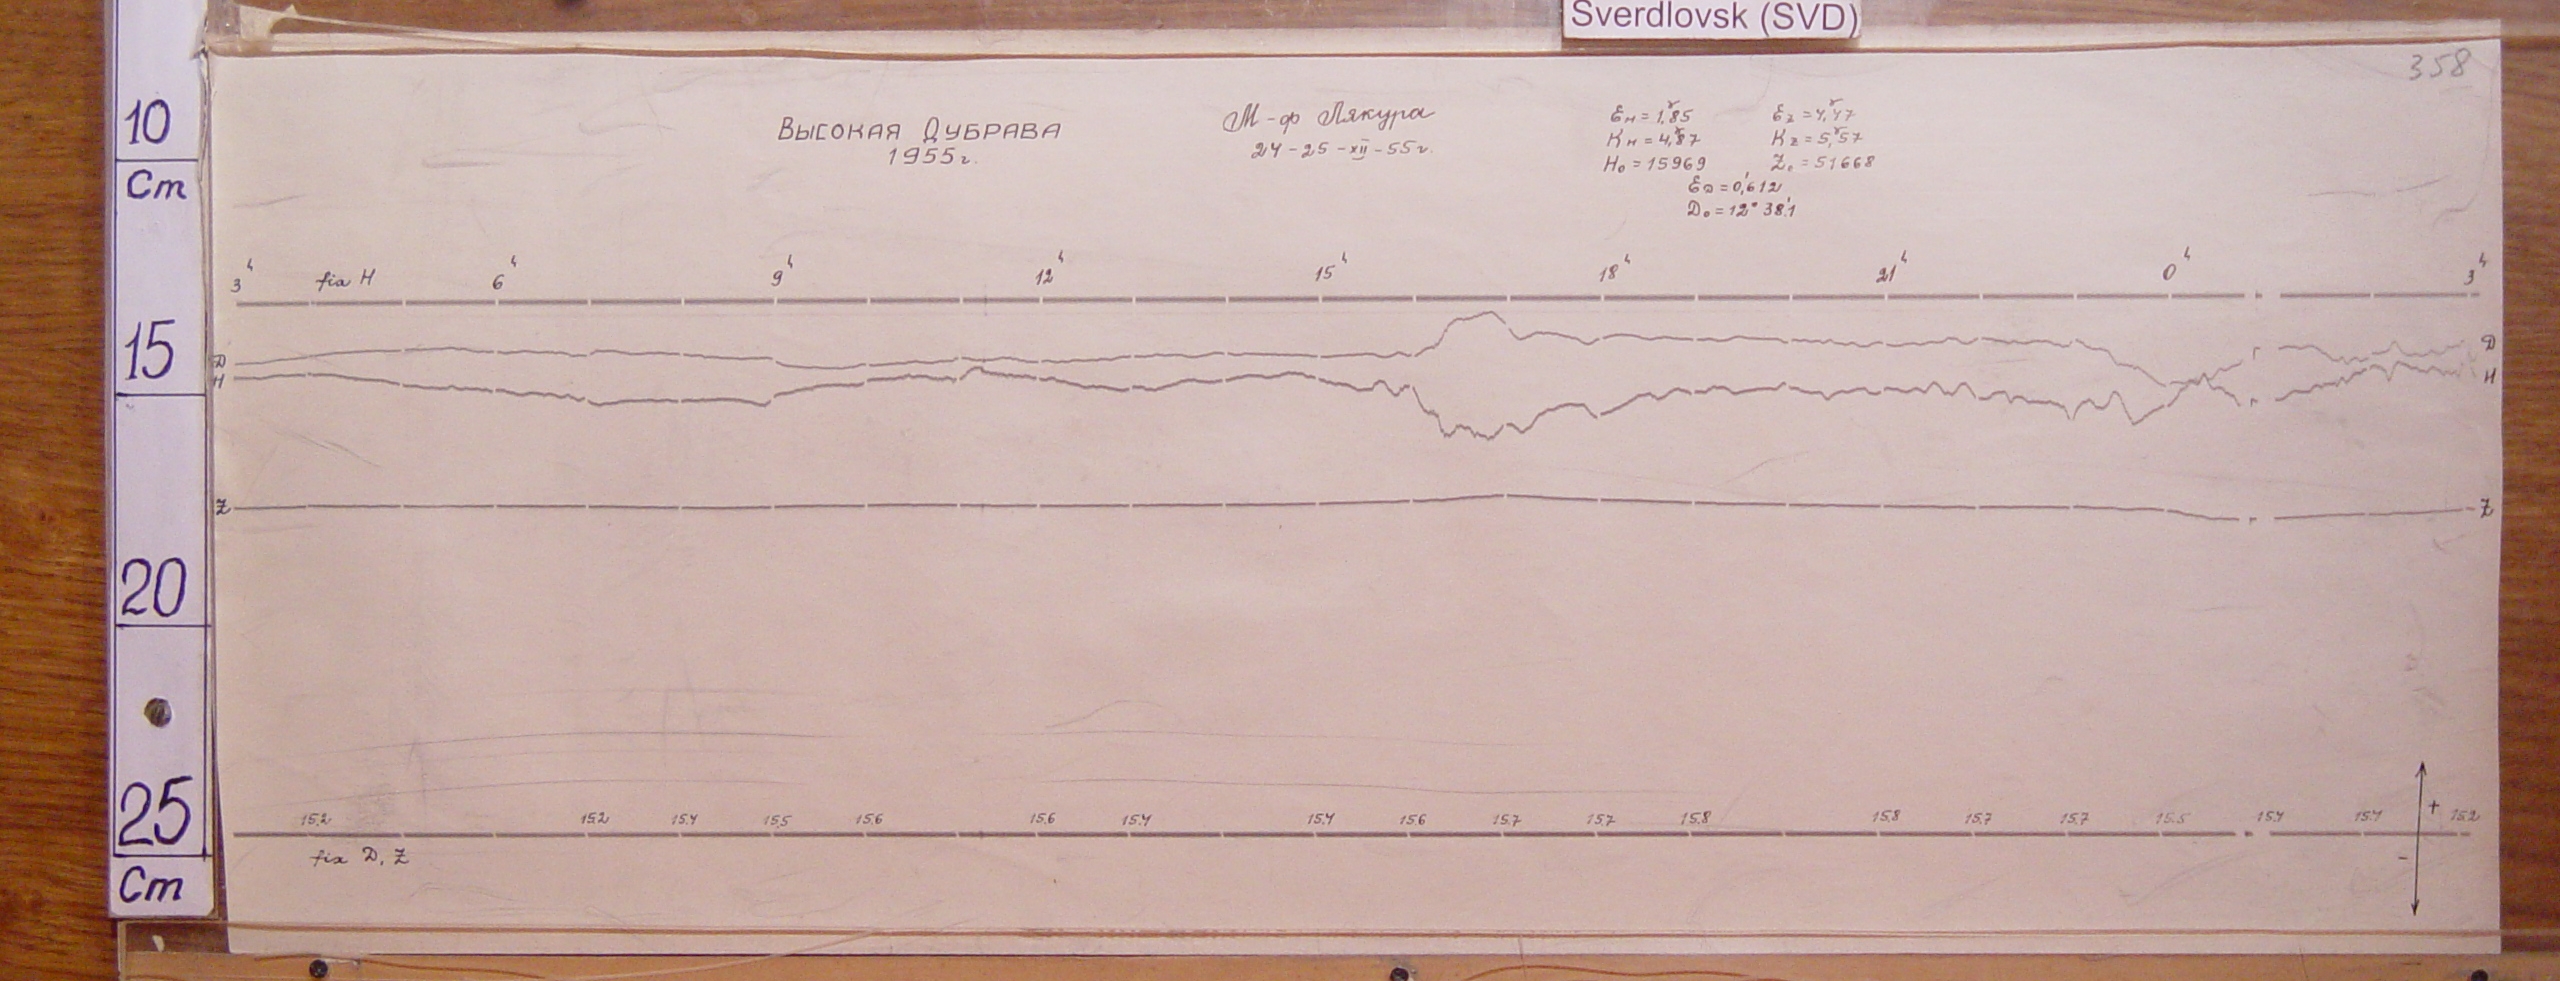 Sverdlovsk (SVD)
358
ВЫСОКАЯ ДУБРАВА
1955г.
М-ф Лякура
24-25-XII-55г.
Ɛн = 1,85 Ɛz = 4,47
Kн = 4,87 Kz = 5,57
H₀ = 15969 Z₀ = 51668
ƐD = 0,612
D₀ = 12° 38,1
3ʰ fix H 6ʰ 9ʰ 12ʰ 15ʰ 18ʰ 21ʰ 0ʰ 3ʰ
D D
H H
Z Z
15.2 15.2 15.4 15.5 15.6 15.6 15.4 15.4 15.6 15.7 15.7 15.8 15.8 15.7 15.7 15.5 15.4 15.4 15.2
fix D, Z
+
-
10
Cm
15
20
25
Cm